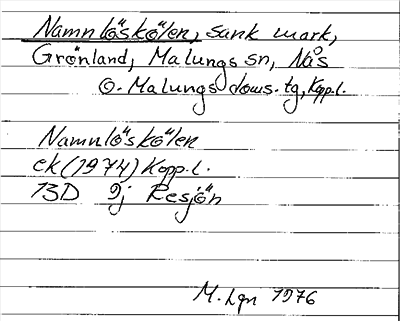 Namnlöskölen, sank mark,
Grönland, Malungs sn, Nås
o. Malungs doms. tg, Kopp. l.
Namnlöskölen
ek (1974) Kopp. l.
13D 9j Resjön
M. Lgn 1976